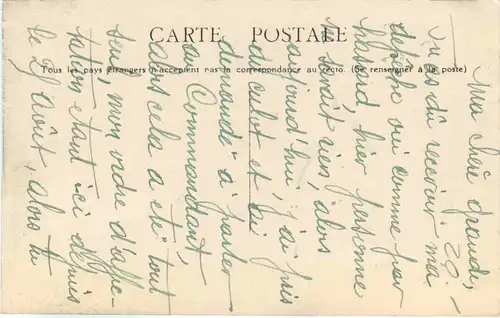 CARTE POSTALE
Tous les pays étrangers n'acceptent pas la correspondance au recto. (Se renseigner à la poste)
Mon cher grande, 29.
Tu as dû recevoir ma
dépêche oui comme par
hasard, hier personne
ne savait rien, alors
aujourd'hui, j'ai pris
du culot et j'ai
demandé à parler
au Commandant,
alors cela a été tout
seul, mon ordre d'affec-
tation étant ici depuis
le 27 août, alors tu